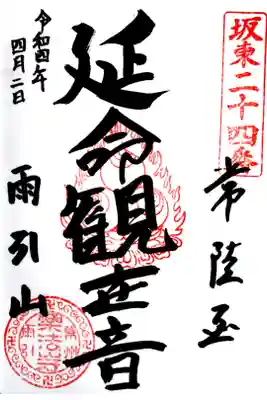 坂東二十四番
常陸国
延命観世音
令和四年
四月二日
雨引山
楽法寺